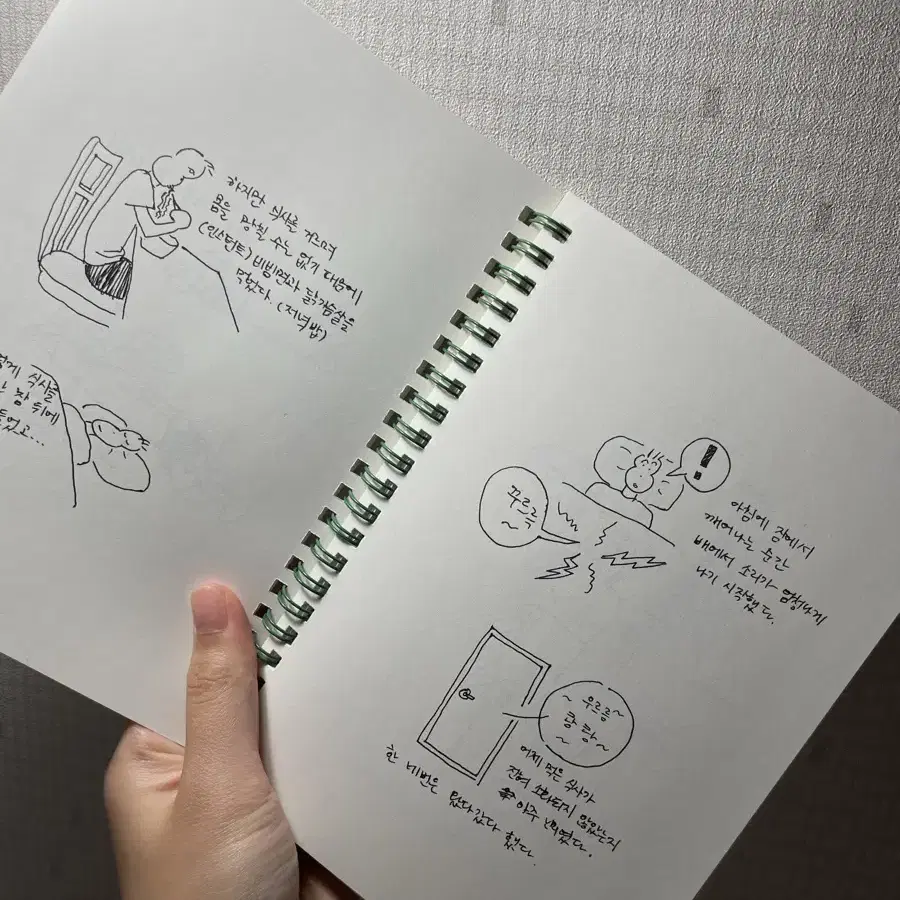 하지만 식사를 거르며
몸을 망칠 수는 없기 때문에
(인스턴트) 비빔면과 닭가슴살을
먹었다. (저녁밥)
식사를
뒤에
!
꾸르륵
~
아침에 잠에서
깨어나는 순간
배에서 소리가 엄청나게
나기 시작했다.
~ 우르릉 ~
쾅쾅
~ ~
어제 먹은 식사가
전혀 소화되지 않았는지
아주
한 네번은 왔다갔다 했다.